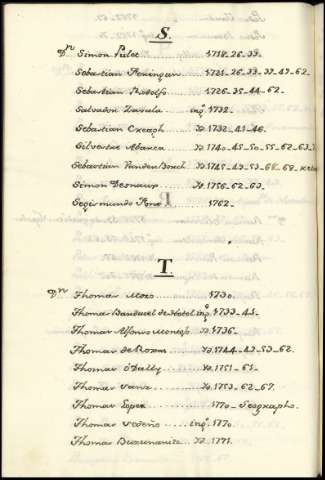 S.
Dn Simon Pulet ... 1718-26-33.
Sebastian ... 1721-26-33-37-47-62.
Sebastian Rodolfo ... 1726-35-44-62.
Salvador Zavala ... ingo 1732.
Sebastian Creagh ... Yo 1732-41-46.
Silvestre Abarca ... Yo 1740-45-50-55-62-63.
Sebastian Vanden Borch ... Yo 1745-49-53-68-69
Simon Desnaux ... Yo 1756-62-63.
Segismundo Font ... 1762.
T.
Dn Thomas Moro ... 1730.
Thomas ... de Hotel ingo 1733-45.
Thomas Alfonso ... Yo 1736.
Thomas de Rojas ... Yo 1744-49-53-62.
Thomas O'Dally ... Yo 1751-61.
Thomas Sanz ... Yo 1753-62-67.
Thomas Lopez ... 1770 - Geographo.
Thomas Sedeño ... ingo 1770.
Thomas Buzunariz ... Yo 1771.